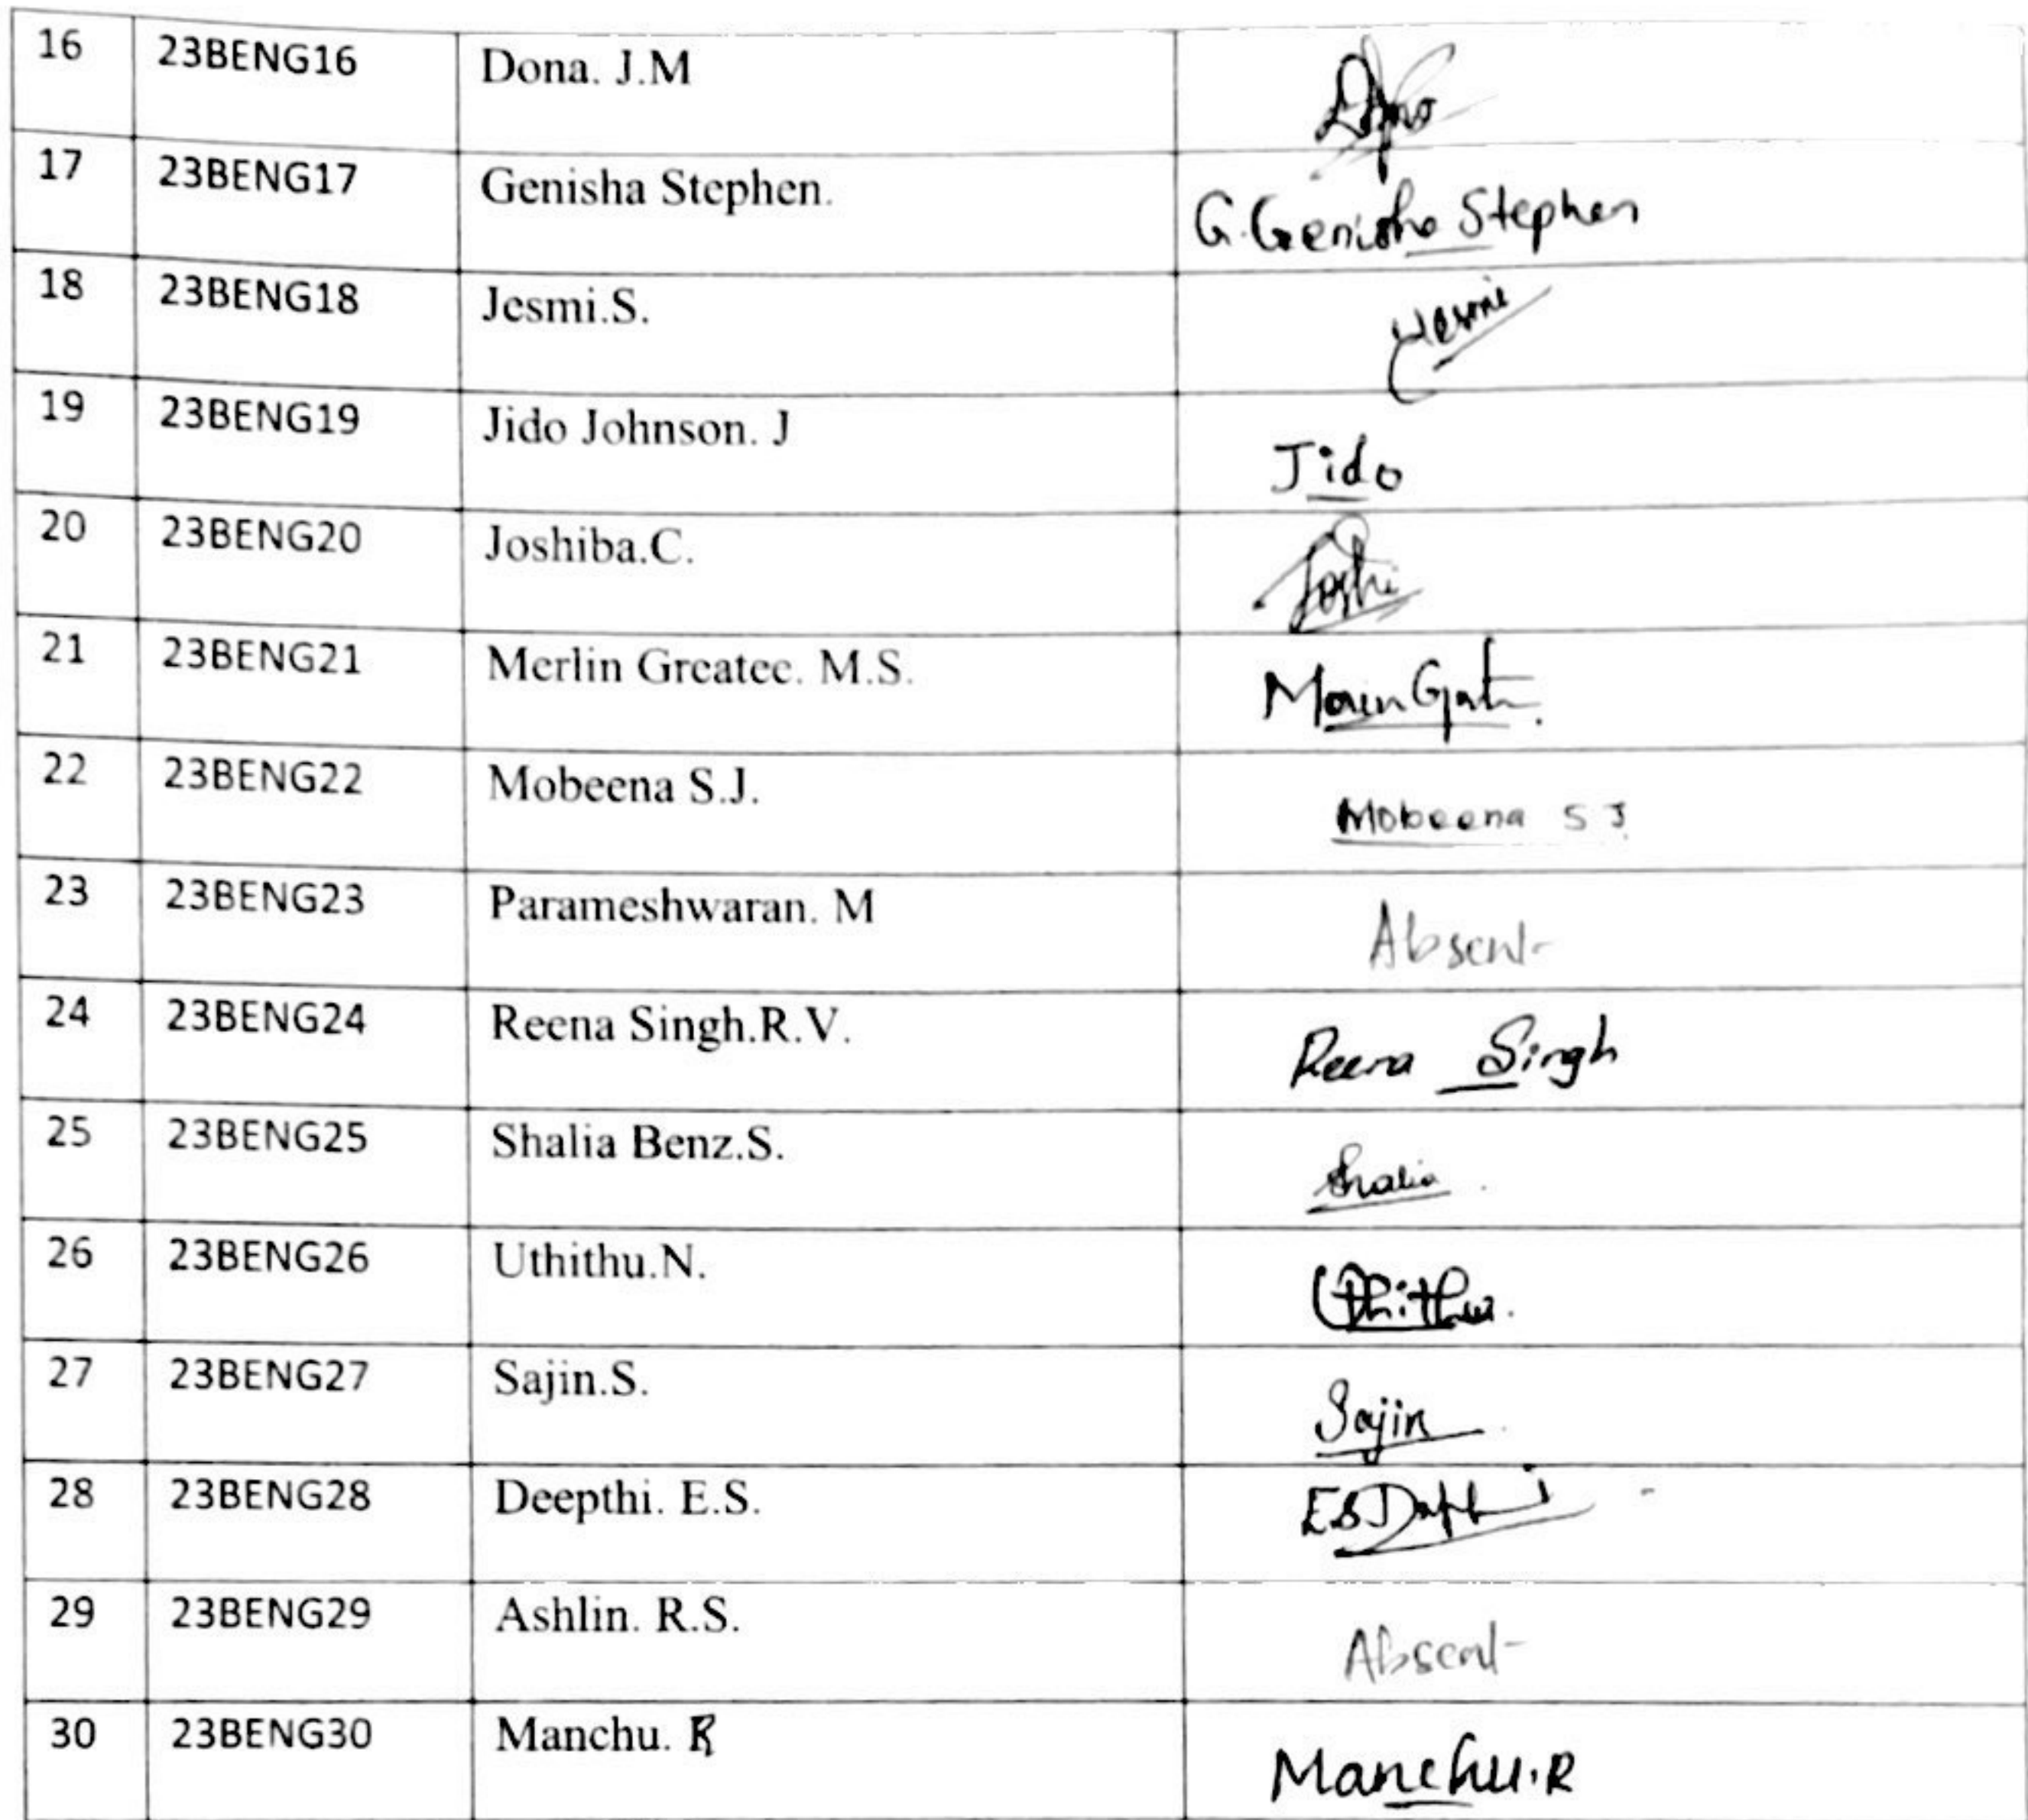 16 23BENG16 Dona. J.M
17 23BENG17 Genisha Stephen. G.Genisha Stephen
18 23BENG18 Jesmi.S. Jesmi
19 23BENG19 Jido Johnson. J Jido
20 23BENG20 Joshiba.C. Joshi
21 23BENG21 Merlin Greatee. M.S.
22 23BENG22 Mobeena S.J. Mobeena S J
23 23BENG23 Parameshwaran. M Absent
24 23BENG24 Reena Singh.R.V. Reena Singh
25 23BENG25 Shalia Benz.S. Shalia
26 23BENG26 Uthithu.N. Uthithu.
27 23BENG27 Sajin.S. Sajin
28 23BENG28 Deepthi. E.S.
29 23BENG29 Ashlin. R.S. Absent
30 23BENG30 Manchu. R Manchu.R